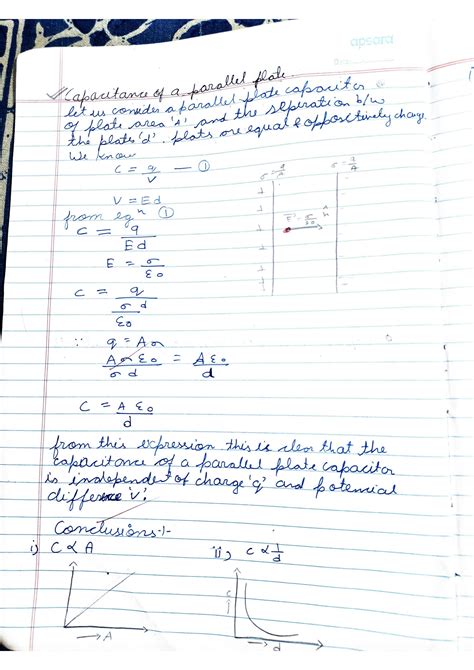 apsara
Capacitance of a parallel plate.
let us consider a parallel plate capacitor
of plate area 'A' and the seperation b/w
the plate 'd'. plats are equal & oppositively charge.
We know
C = q/V — ①
V = Ed
from eqⁿ ①
C = q/Ed
E = σ/ε0
C = q/(σ d/ε0)
∵ q = Aσ
Aσ ε0/σ d = A ε0/d
C = A ε0/d
from this expression this is clear that the
capacitance of a parallel plate capacitor
is independet of charge 'q' and potencial
difference 'v'.
Conclusions:-
i) C ∝ A
ii) C ∝ 1/d
→ A
C
→ d